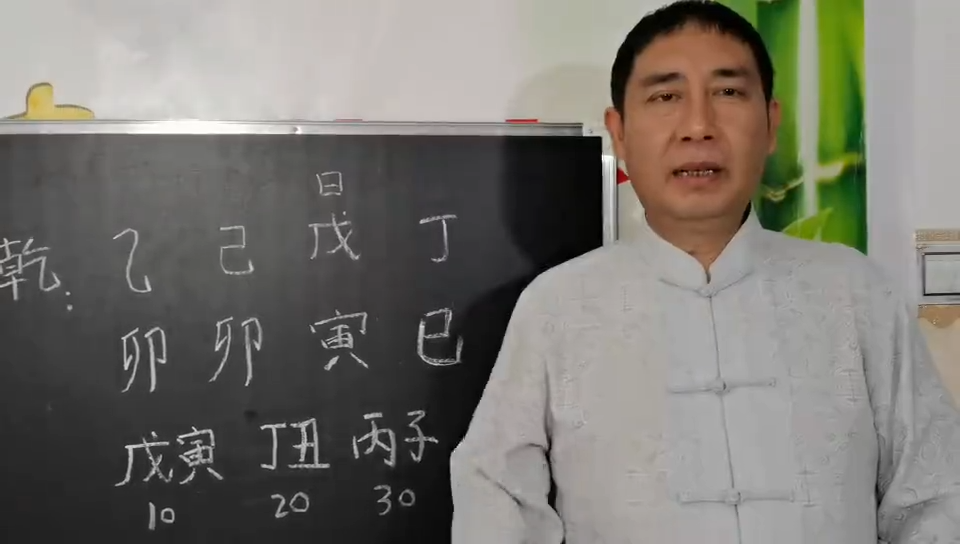 日
乾: 乙 己 戊 丁
卯 卯 寅 巳
戊寅 丁丑 丙子
10 20 30